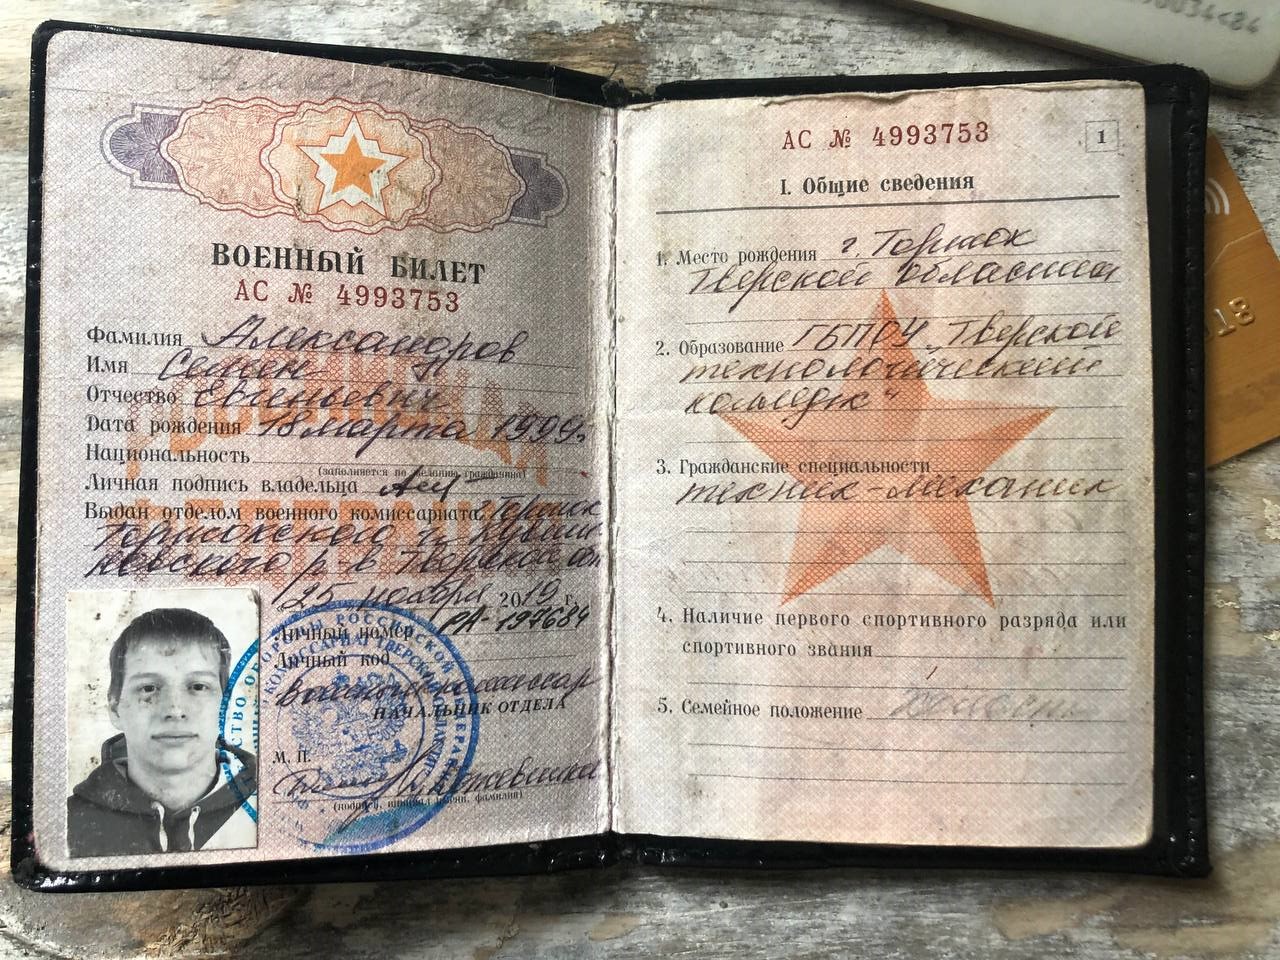 ВОЕННЫЙ БИЛЕТ
АС № 4993753
Фамилия Александров
Имя Семен
Отчество Евгеньевич
Дата рождения 18 марта 1999г.
Национальность
(заполняется по желанию гражданина)
Личная подпись владельца
Выдан отделом военного комиссариата г. Торжок
Торжокского и Кувши
новского р-в Тверской об
"25" ноября 2019 г.
Личный номер РА-197684
Личный код
Военный комиссар
НАЧАЛЬНИК ОТДЕЛА
М. П.
(подпись, инициал имени, фамилия)
АС № 4993753
1
I. Общие сведения
1. Место рождения г. Торжок
Тверской области
2. Образование ГБПОУ "Тверской
технологический
колледж"
3. Гражданские специальности
техник-механик
4. Наличие первого спортивного разряда или
спортивного звания
5. Семейное положение холост